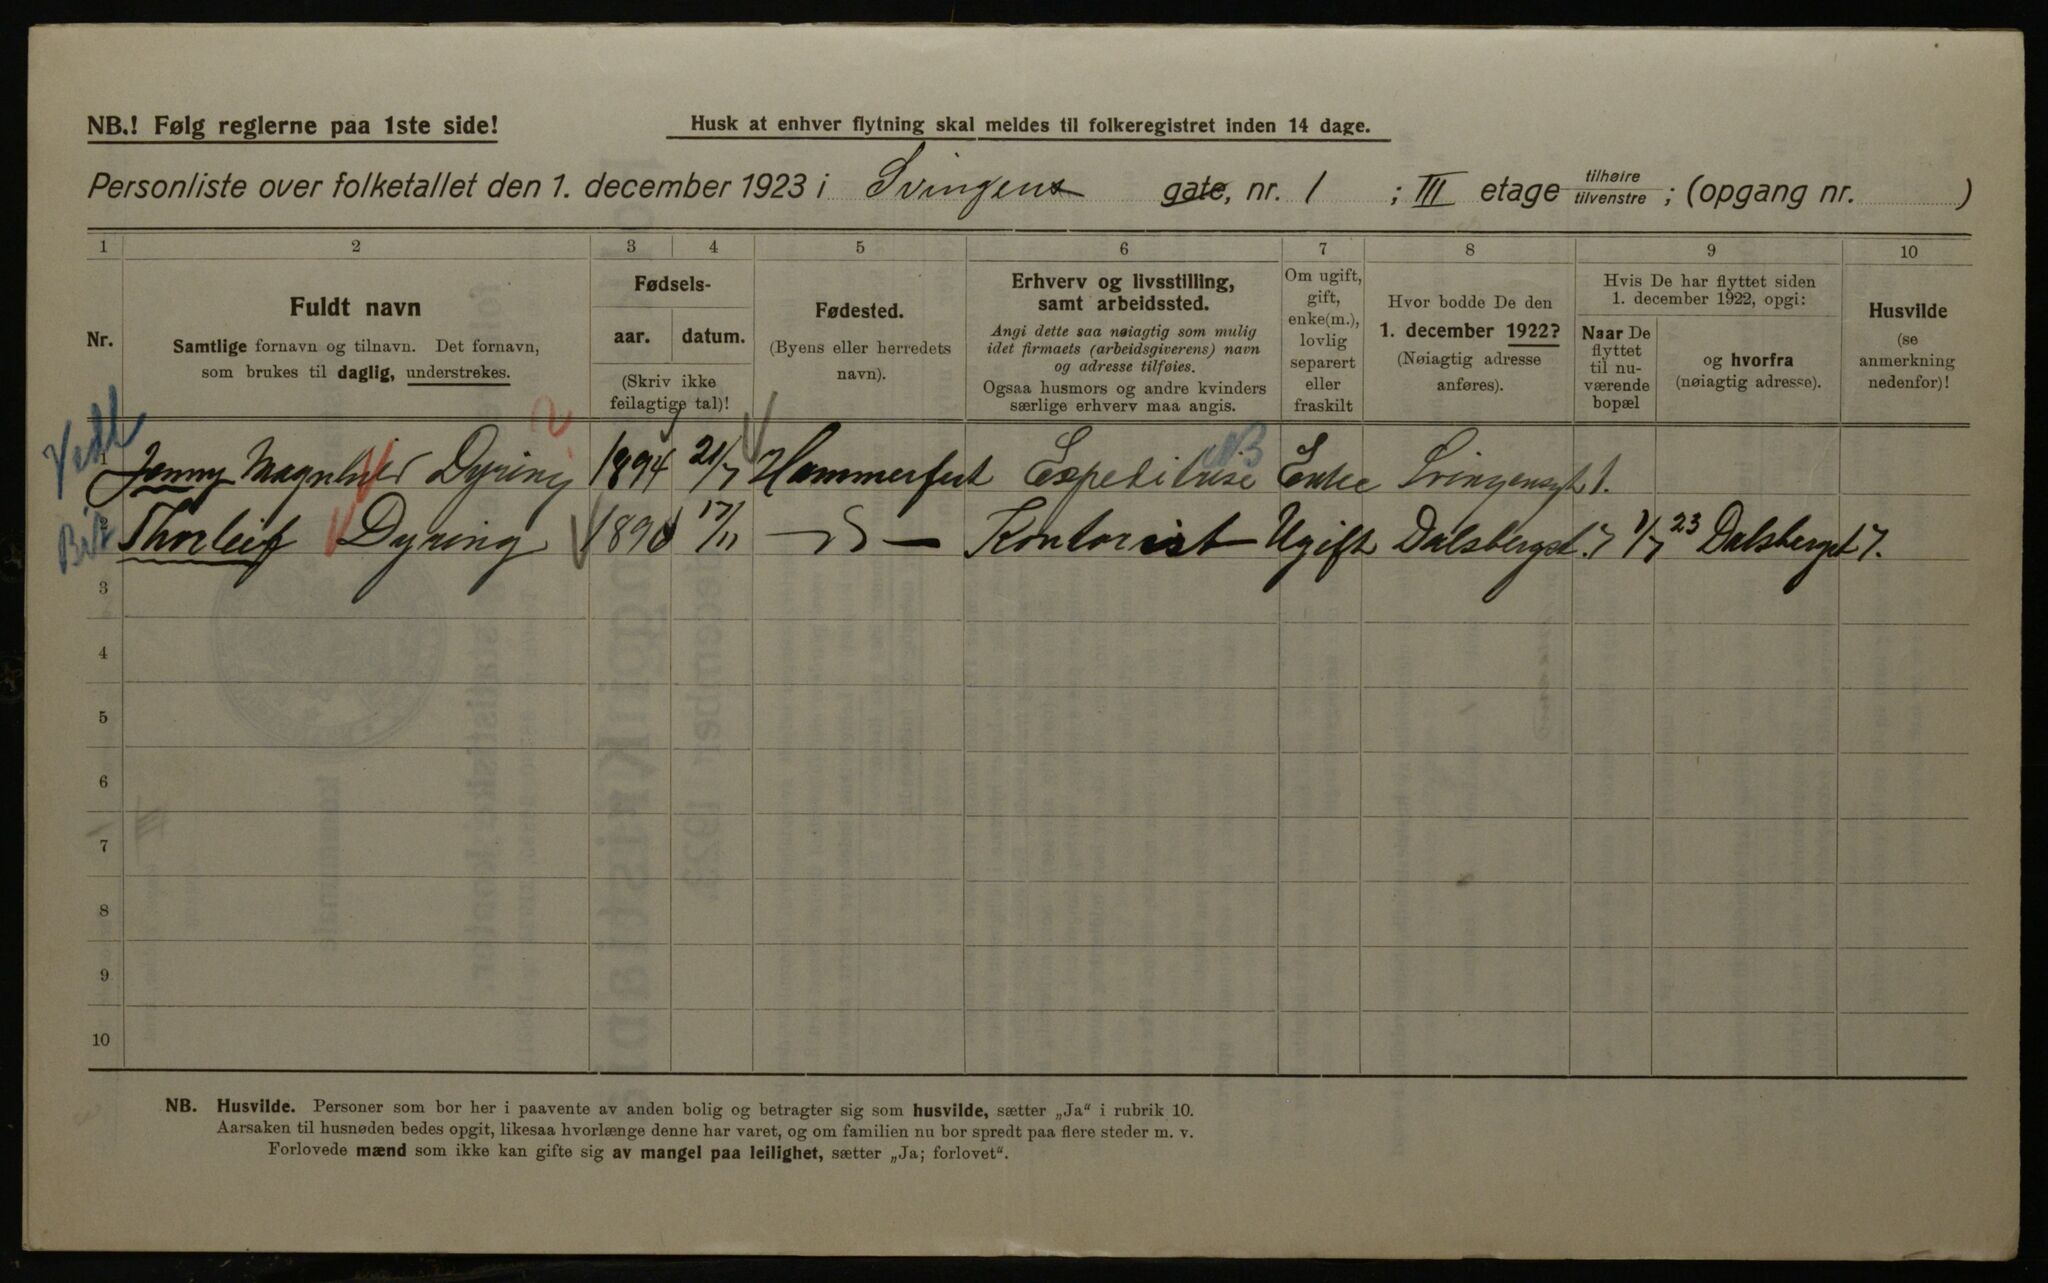 NB.! Følg reglerne paa 1ste side!
Husk at enhver flytning skal meldes til folkeregistret inden 14 dage.
Personliste over folketallet den 1. december 1923 i Svingens gate, nr. 1 ; III etage tilhøire tilvenstre ; (opgang nr. )
1 2 3 4 5 6 7 8 9 10
Nr.
Fuldt navn
Samtlige fornavn og tilnavn. Det fornavn,
som brukes til daglig, understrekes.
Fødsels-
aar. datum.
(Skriv ikke
feilagtige tal)!
Fødested.
(Byens eller herredets
navn).
Erhverv og livsstilling,
samt arbeidssted.
Angi dette saa nøiagtig som mulig
idet firmaets (arbeidsgiverens) navn
og adresse tilføies.
Ogsaa husmors og andre kvinders
særlige erhverv maa angis.
Om ugift,
gift,
enke(m.),
lovlig
separert
eller
fraskilt
Hvor bodde De den
1. december 1922?
(Nøiagtig adresse
anføres).
Hvis De har flyttet siden
1. december 1922, opgi:
Naar De
flyttet
til nu-
værende
bopæl
og hvorfra
(nøiagtig adresse).
Husvilde
(se
anmerkning
nedenfor)!
2
NB
Jenny Magnhild Dyring 1894 21/7 Hammerfest Expeditrise Enke Svingensgt 1.
2 Thorleif Dyring 17/11 Kontorist Ugift Dalsbergst. 7 1/7 23 Dalsbergst 7.
3
4
5
6
7
8
9
10
NB. Husvilde. Personer som bor her i paavente av anden bolig og betragter sig som husvilde, sætter „Ja“ i rubrik 10.
Aarsaken til husnøden bedes opgit, likesaa hvorlænge denne har varet, og om familien nu bor spredt paa flere steder m. v.
Forlovede mænd som ikke kan gifte sig av mangel paa leilighet, sætter „Ja; forlovet“.